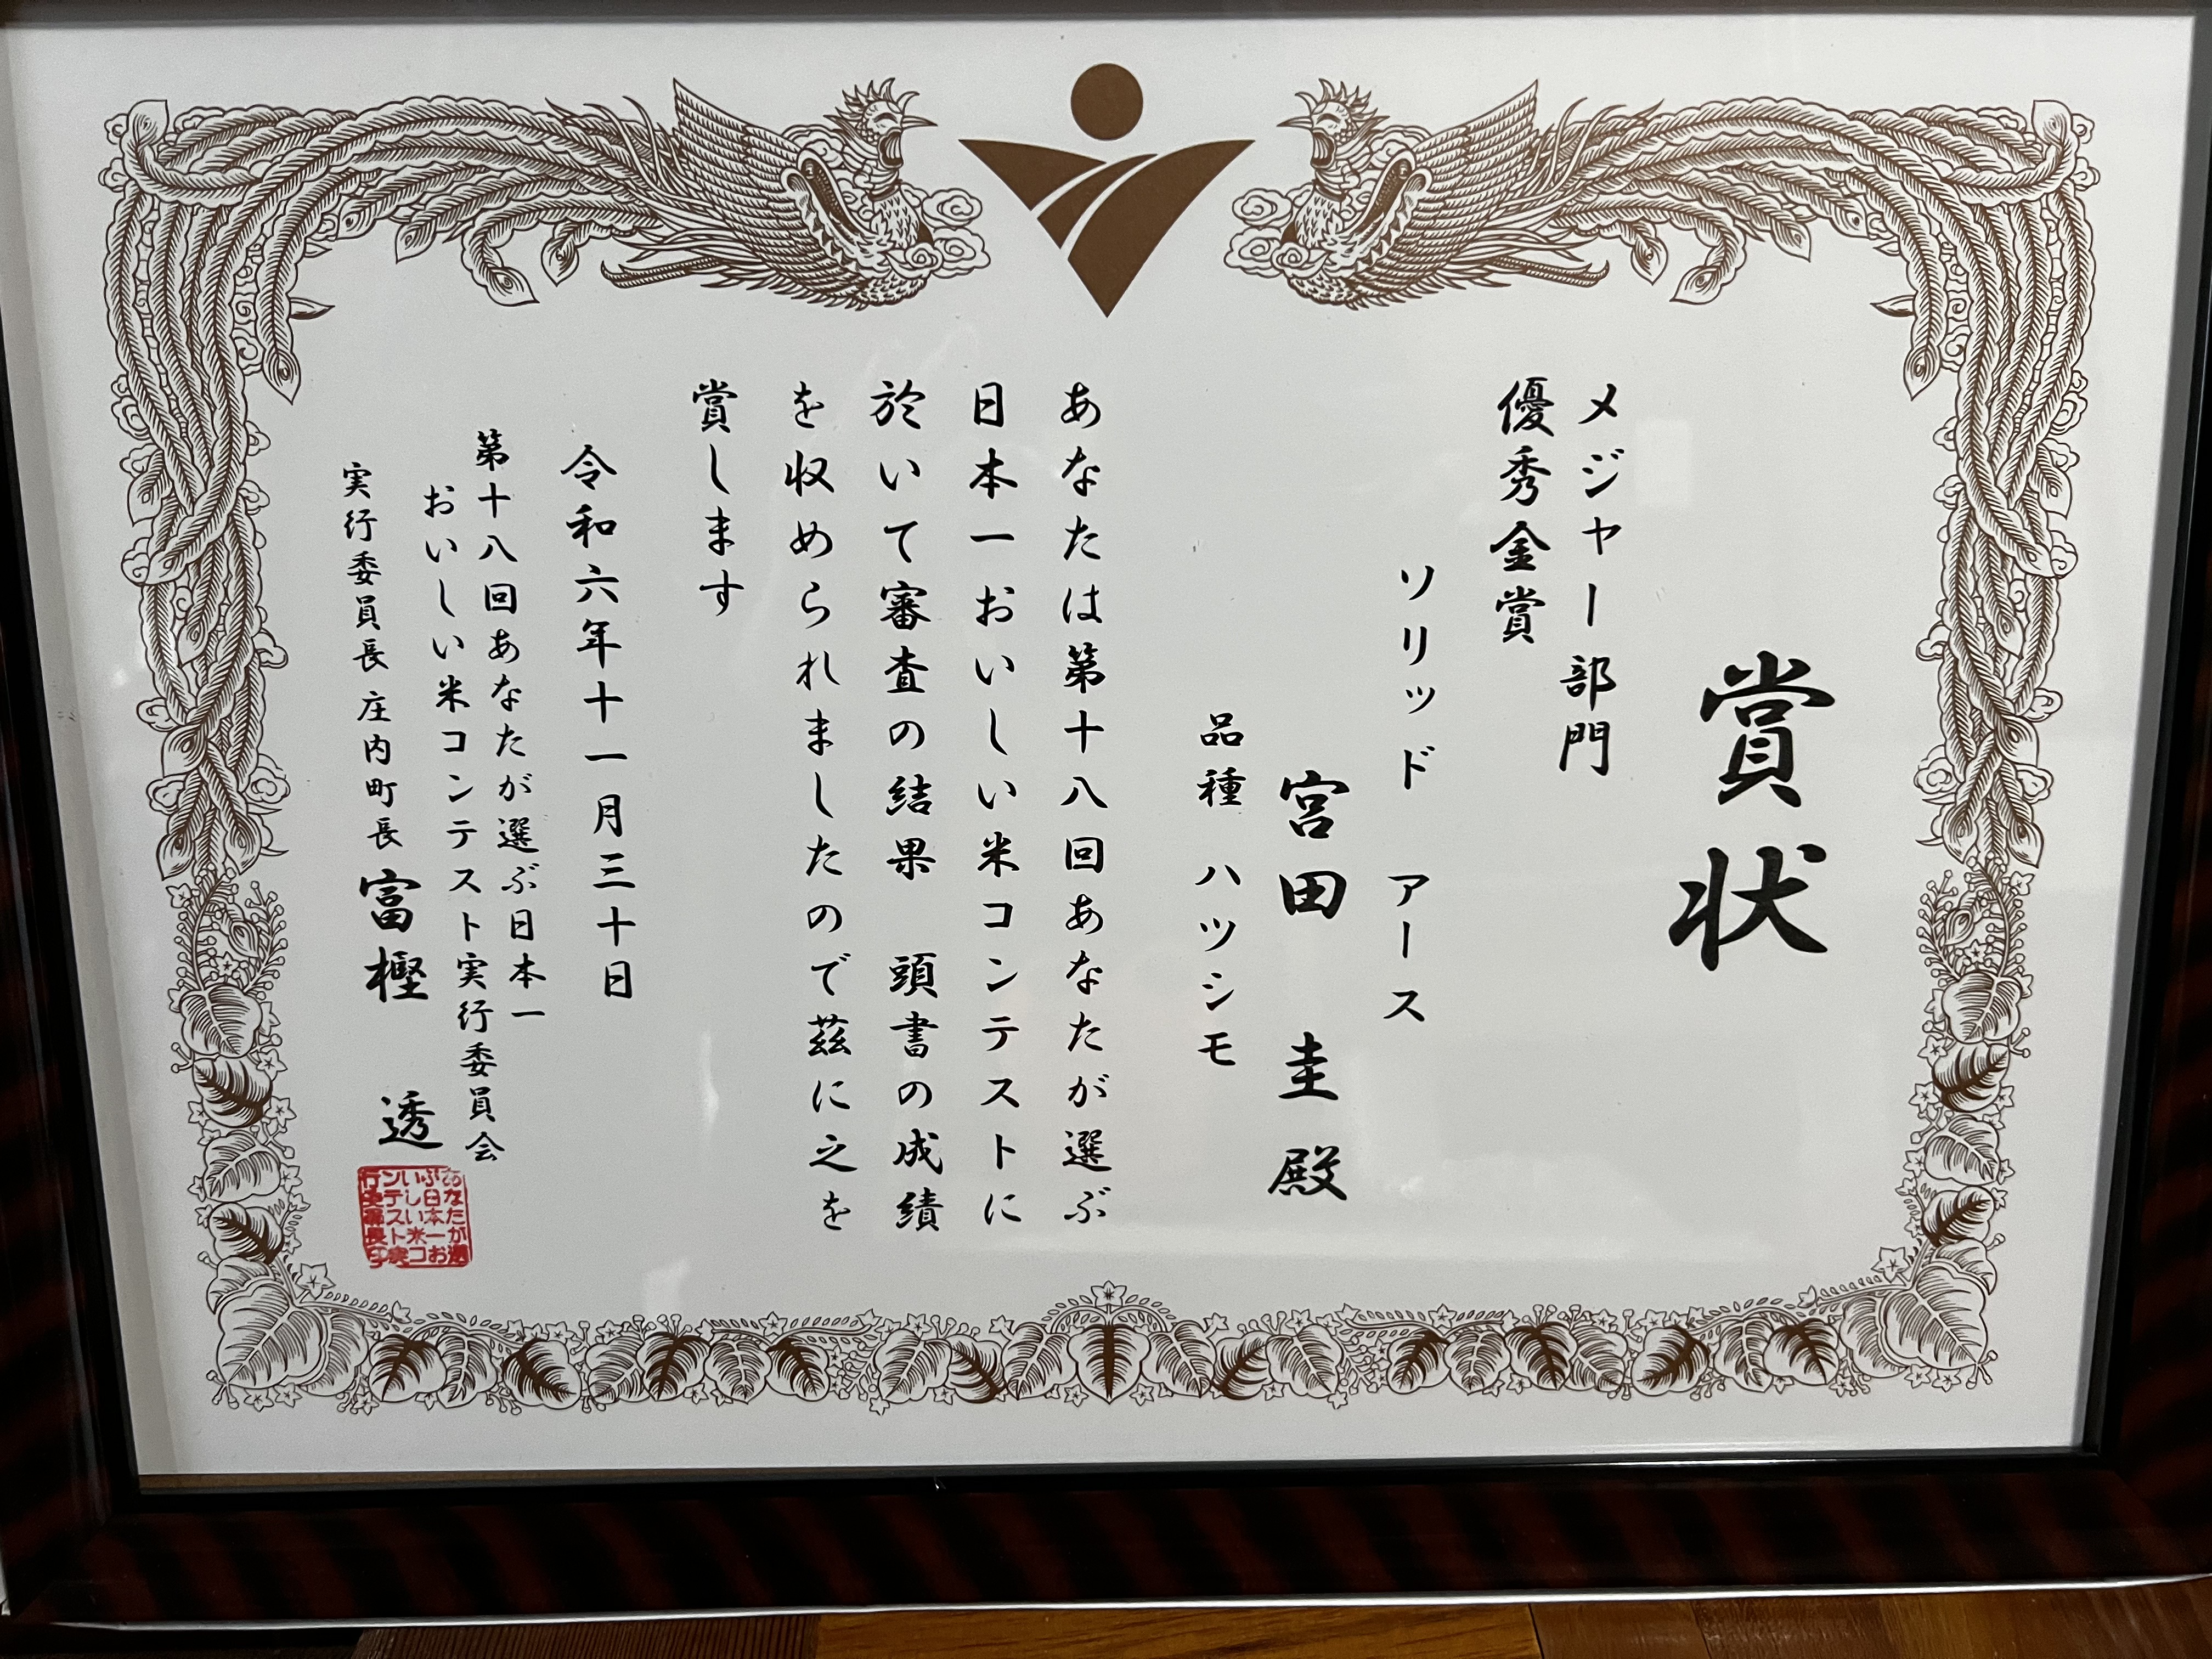 賞状
メジャー部門
優秀金賞
ソリッド アース
宮田 圭 殿
品種 ハツシモ
あなたは第十八回あなたが選ぶ
日本一おいしい米コンテストに
於いて審査の結果 頭書の成績
を収められましたので茲に之を
賞します
令和六年十一月三十日
第十八回あなたが選ぶ日本一
おいしい米コンテスト実行委員会
実行委員長 庄内町長 富樫 透
あなたが選
ぶ日本一お
いしい米コ
ンテスト実
行委員長印